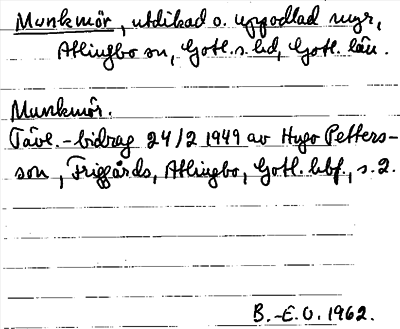 Munkmör, utdikad o. uppodlad myr,
Atlingbo sn, Gotl. s. hd, Gotl. län.
Munkmör.
Tävl.-bidrag 24/2 1949 av Hugo Petters-
son, Friggårds, Atlingbo, Gotl. hbf., s. 2.
B.-E. O. 1962.